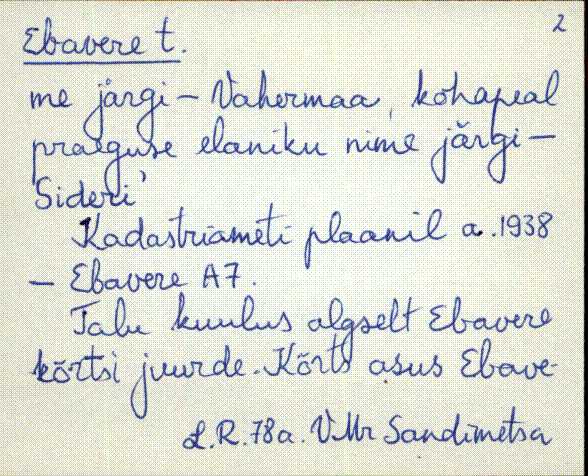 2
Ebavere t.
me järgi – Vahermaa, kohapeal
praeguse elaniku nime järgi –
Sideri'
Kadastriameti plaanil a. 1938
– Ebavere A7.
Talu kuulus algselt Ebavere
kõrtsi juurde. Kõrts asus Ebave-
L.R. 78a. V.Mr Sandimetsa